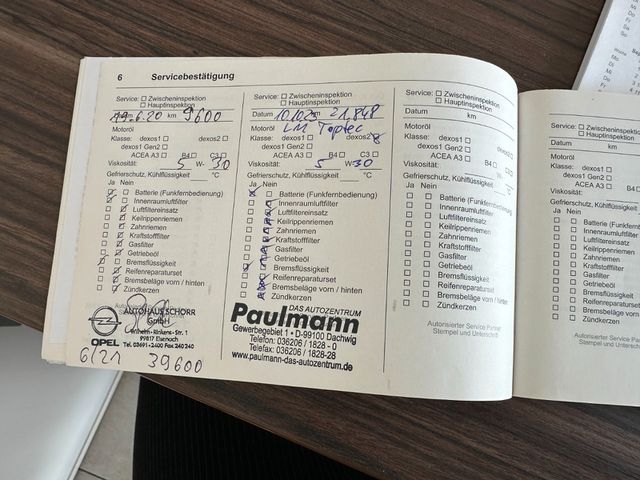 6 Servicebestätigung
Service: Zwischeninspektion
Hauptinspektion
19.6.20 km 9600
Motoröl
Klasse: dexos1 dexos2
dexos1 Gen2
ACEA A3 B4 C3
Viskosität: 5 W- 30
Gefrierschutz, Kühlflüssigkeit °C
Ja Nein
Batterie (Funkfernbedienung)
Innenraumluftfilter
Luftfiltereinsatz
Keilrippenriemen
Zahnriemen
Kraftstofffilter
Gasfilter
Getriebeöl
Bremsflüssigkeit
Reifenreparaturset
Bremsbeläge vorn / hinten
Zündkerzen
AUTOHAUS SCHORR
GmbH
99817 Eisenach
OPEL
6/21 39600
Service: Zwischeninspektion
Hauptinspektion
Datum km 21.848
Motoröl LM Toptec
Klasse: dexos1 dexos2
dexos1 Gen2
ACEA A3 B4 C3
Viskosität: 5 W- 30
Gefrierschutz, Kühlflüssigkeit °C
Ja Nein
Batterie (Funkfernbedienung)
Innenraumluftfilter
Luftfiltereinsatz
Keilrippenriemen
Zahnriemen
Kraftstofffilter
Gasfilter
Getriebeöl
Bremsflüssigkeit
Reifenreparaturset
Bremsbeläge vorn / hinten
Zündkerzen
DAS AUTOZENTRUM
Paulmann
Gewerbegebiet 1 • D-99100 Dachwig
Telefon: 036206 / 1828 - 0
Telefax: 036206 / 1828-28
www.paulmann-das-autozentrum.de
Service: Zwischeninspektion
Hauptinspektion
Datum km
Motoröl
Klasse: dexos1 dexos2
dexos1 Gen2
ACEA A3 B4 C3
Viskosität: W-
Gefrierschutz, Kühlflüssigkeit °C
Ja Nein
Batterie (Funkfernbedienung)
Innenraumluftfilter
Luftfiltereinsatz
Keilrippenriemen
Zahnriemen
Kraftstofffilter
Gasfilter
Getriebeöl
Bremsflüssigkeit
Reifenreparaturset
Bremsbeläge vorn / hinten
Zündkerzen
Autorisierter Service Partner
Stempel und Unterschrift
Service: Zwischeninspektion
Hauptinspektion
Datum
Motoröl
Klasse: dexos1
dexos1 Gen2
ACEA A3
Viskosität:
Gefrierschutz, Kühlflüssigkeit
Ja Nein
Batterie (Funkfernbedienung)
Innenraumluftfilter
Luftfiltereinsatz
Keilrippenriemen
Zahnriemen
Kraftstofffilter
Gasfilter
Getriebeöl
Bremsflüssigkeit
Reifenreparaturset
Bremsbeläge vorn / hinten
Zündkerzen
Autorisierter Service
Stempel und Unterschrift